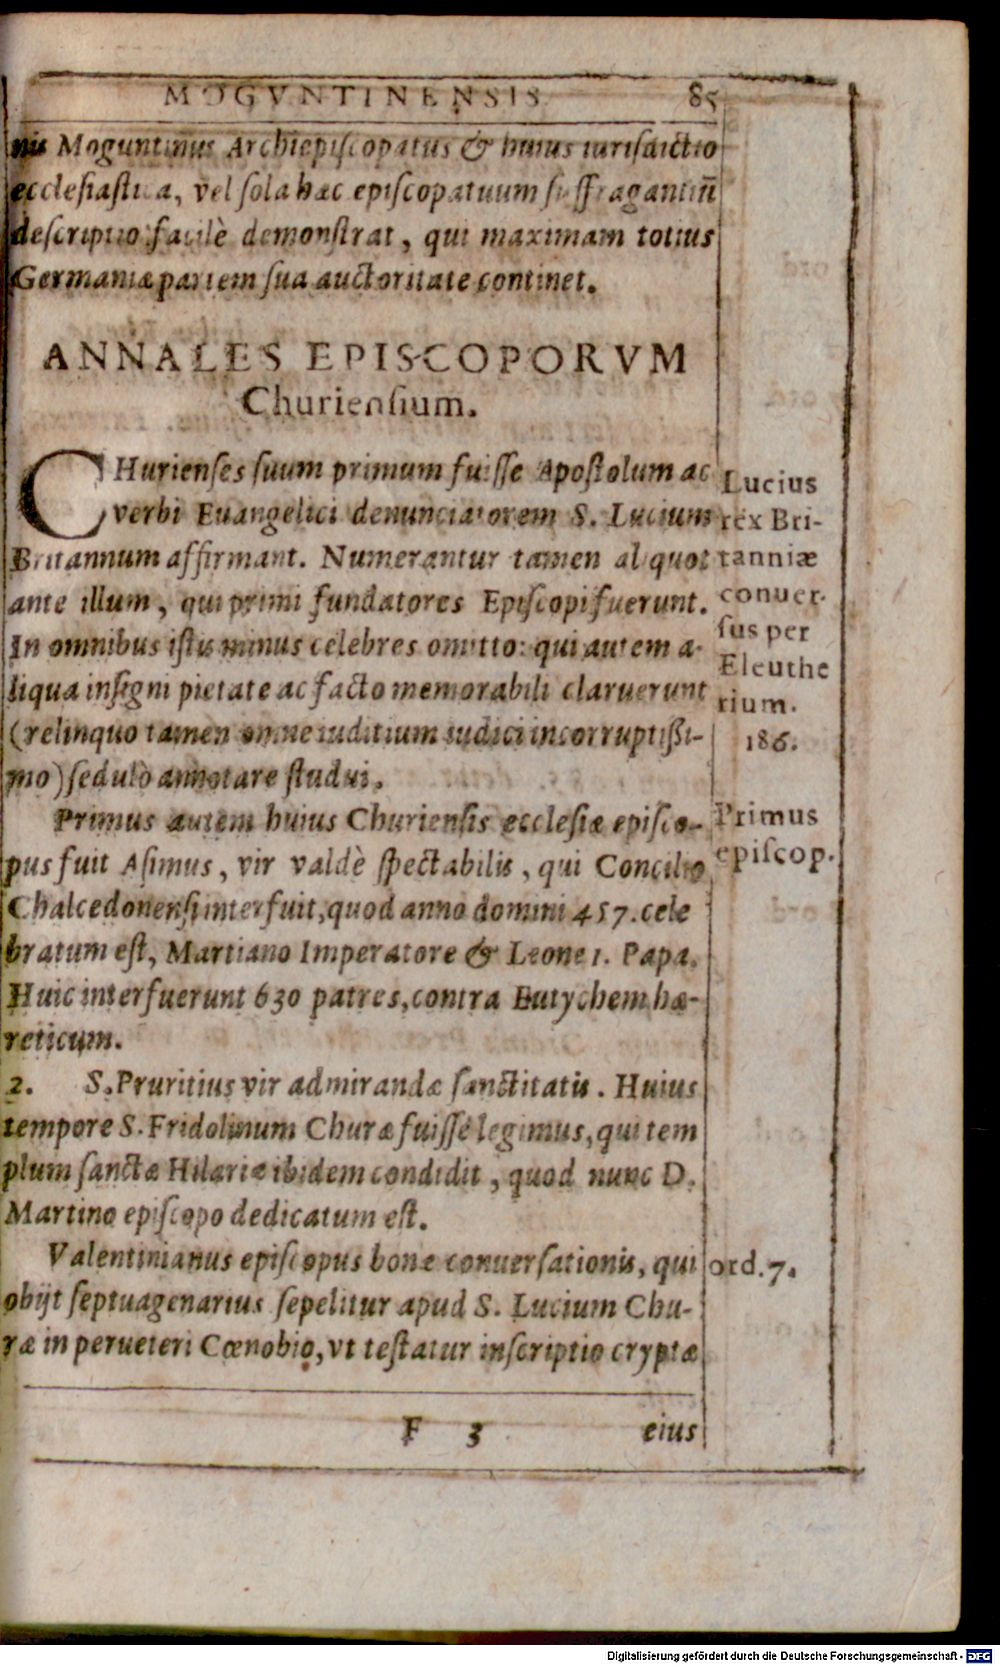 MOGVNTINENSIS 85
nis Moguntinus Archiepiscopatus & huius iurisdictio
ecclesiastica, vel sola hæc episcopatuum suffraganeũ
descriptio facilè demonstrat, qui maximam totius
Germaniæ partem sua auctoritate continet.
ANNALES EPISCOPORVM
Churiensium.
CHurienses suum primum fuisse Apostolum ac
verbi Euangelici denunciatorem S. Lucium
Britannum affirmant. Numerantur tamen aliquot
ante illum, qui primi fundatores Episcopi fuerunt.
In omnibus istis minus celebres omitto: qui autem a-
liqua insigni pietate ac facto memorabili claruerunt
(relinquo tamen omne iuditium iudici incorruptißi-
mo) sedulò annotare studui.
Lucius
rex Bri-
tanniæ
conuer-
sus per
Eleuthe
rium.
186.
Primus autem huius Churiensis ecclesiæ episco-
pus fuit Asimus, vir valdè spectabilis, qui Concilio
Chalcedonensi interfuit, quod anno domini 457. cele
bratum est, Martiano Imperatore & Leone 1. Papa.
Huic interfuerunt 630 patres, contra Eutychem hæ-
reticum.
Primus
episcop.
2. S. Pruritius vir admirandæ sanctitatis. Huius
tempore S. Fridolinum Churæ fuisse legimus, qui tem
plum sanctæ Hilariæ ibidem condidit, quod nunc D.
Martino episcopo dedicatum est.
Valentinianus episcopus bonæ conuersationis, qui
obijt septuagenarius sepelitur apud S. Lucium Chu-
ræ in perueteri Cœnobio, vt testatur inscriptio cryptæ
ord. 7.
F 3 eius
Digitalisierung gefördert durch die Deutsche Forschungsgemeinschaft - DFG